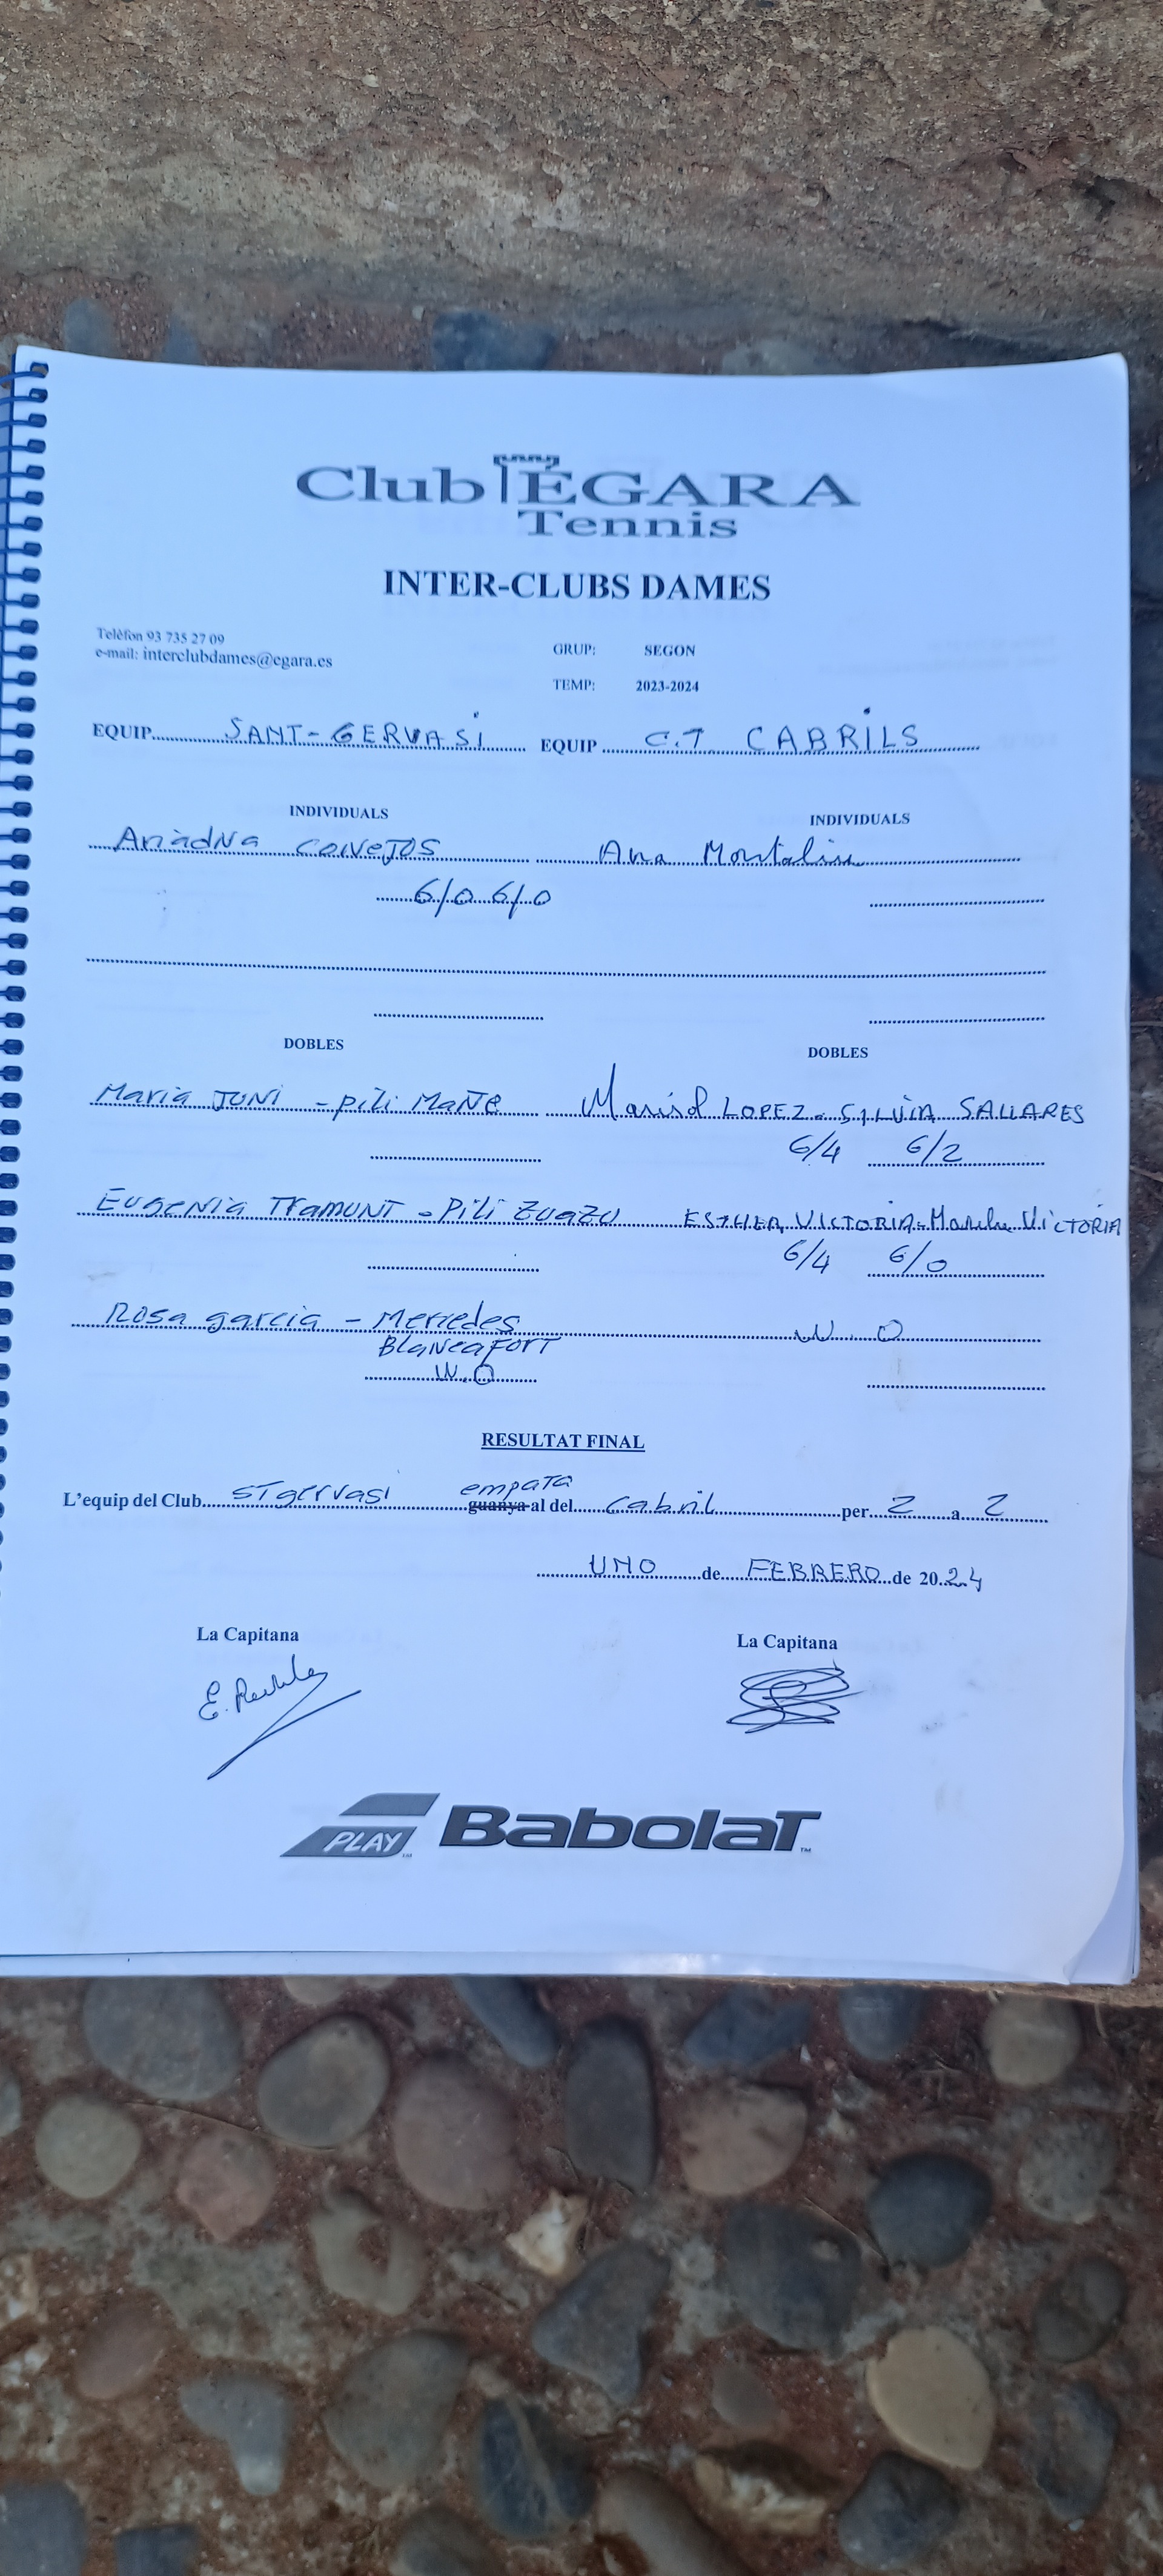 Club ÉGARA
Tennis
INTER-CLUBS DAMES
Telèfon 93 735 27 09
e-mail: interclubdames@egara.es
GRUP: SEGON
TEMP: 2023-2024
EQUIP SANT-GERVASI EQUIP C.T. CABRILS
INDIVIDUALS INDIVIDUALS
Ariadna Ana
6/0 6/0
DOBLES DOBLES
Maria JUNI - pili Mañe Marisol LOPEZ - SILVIA SALLARES
6/4 6/2
EUGENIA TRAMUNT - PILI ZUAZU ESTHER VICTORIA - VICTORIA
6/4 6/0
Rosa garcia - Mercedes W.O
BlaNcaFORT
W.O
RESULTAT FINAL
empata
L'equip del Club STgervasi guanya al del Cabril per 2 a 2
UNO de FEBRERO de 2024
La Capitana La Capitana
PLAY BabolaT